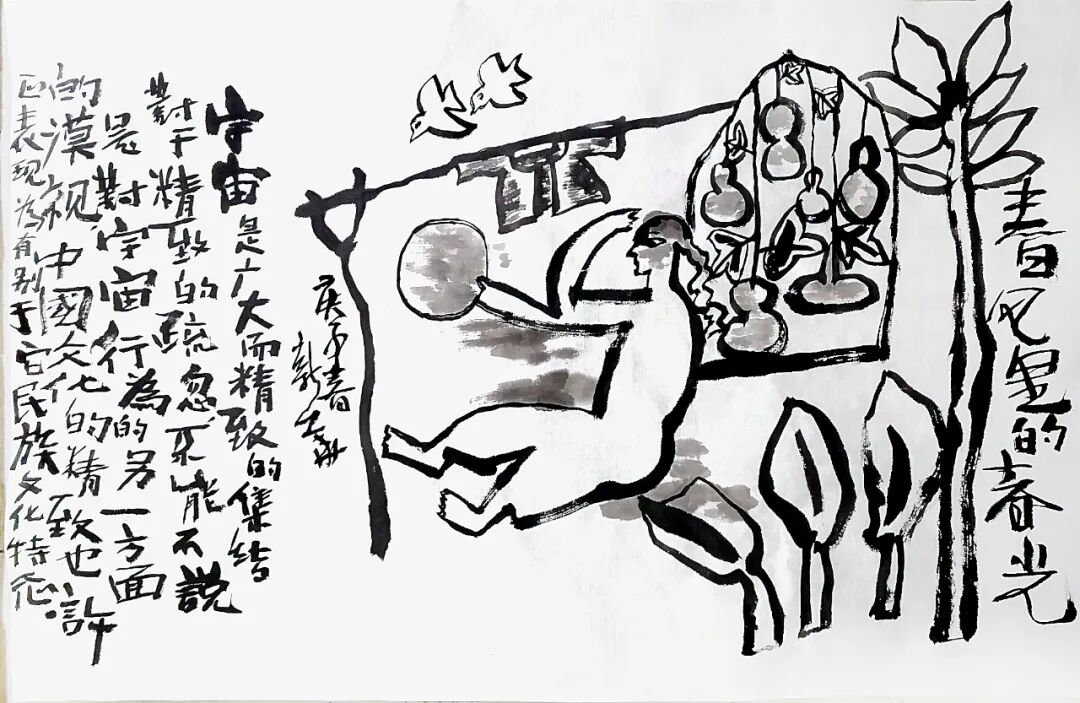 春风里的春光
庚子春
宇宙是广大而精致的集结
對于精致的疏忽不能不説
是對宇宙行為的另一方面
的漠視中國文化的精致也許
正表現為有别于它民族文化特